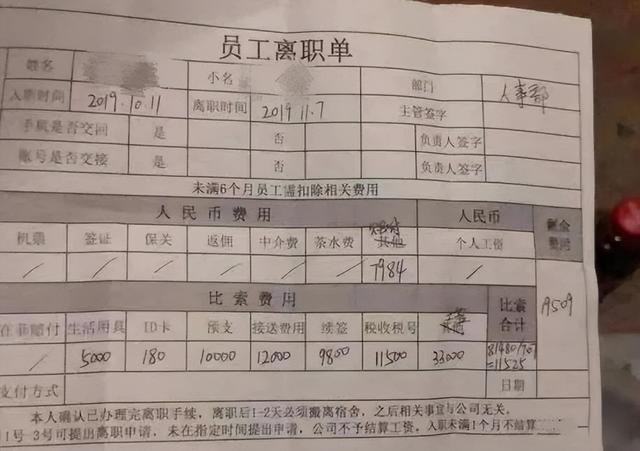 员工离职单
姓名 小名 部门 人事部
入职时间 2019.10.11 离职时间 2019 11.7 主管签字
手机是否交回 是 否 负责人签字
账号是否交接 是 否 负责人签字
未满6个月员工需扣除相关费用
人民币费用 人民币 剩余费用
机票 签证 保关 返佣 中介费 茶水费 其他 个人工资
/ / / / / / 7984 / 19509
比索费用 比索合计
在菲赔付 生活用具 ID卡 预支 接送费用 续签 税收税号
/ 5000 180 10000 12000 9800 11500 33000 81480/7.07=11525
支付方式 日期
本人确认已办理完离职手续，离职后1-2天必须搬离宿舍，之后相关事宜与公司无关。
1号 3号可提出离职申请，未在指定时间提出申请，公司不予结算工资。入职未满1个月不结算